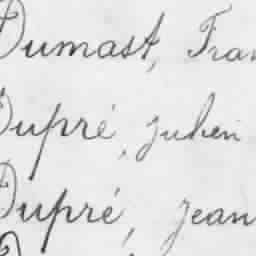 Dumast, Fran
Dupré, Julien
Dupré, Jean